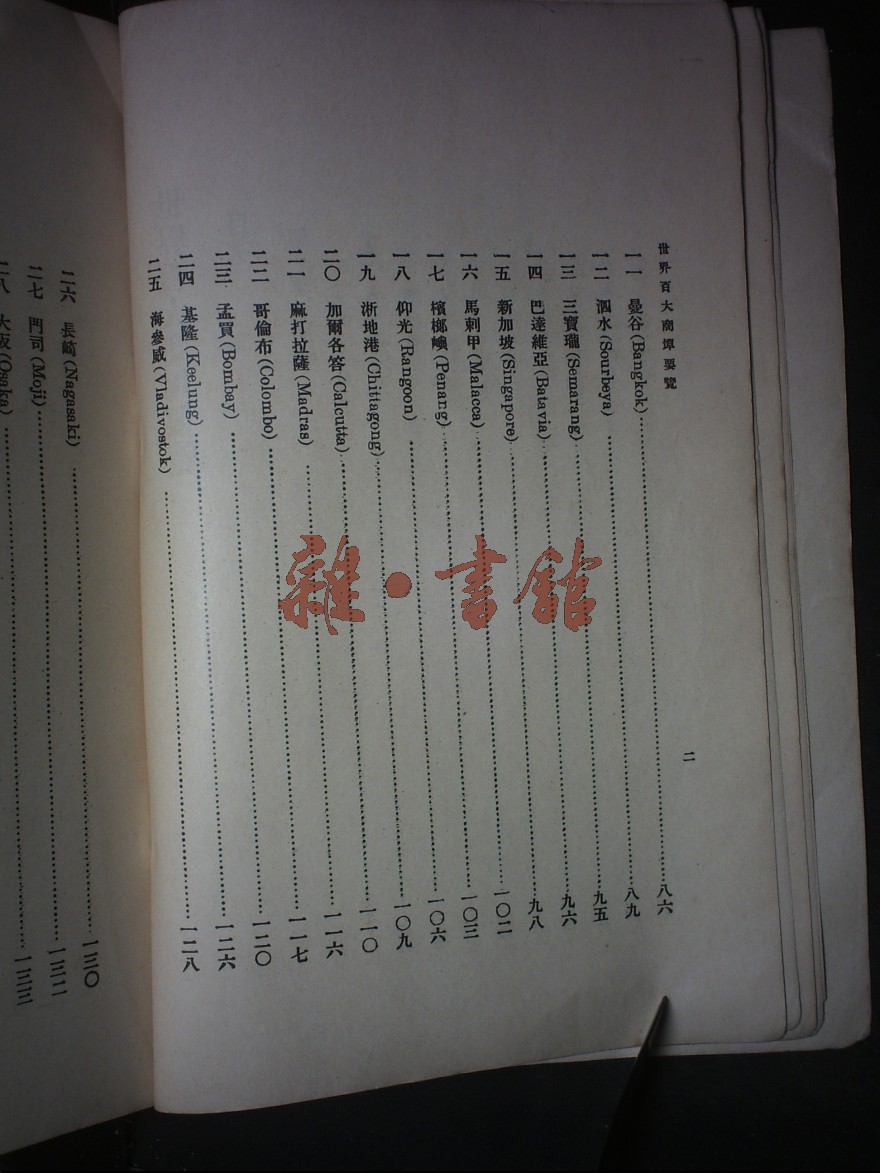 世界百大商埠要覽
二
一一 曼谷(Bangkok)……八六
一二 泗水(Sourbeya)……八九
一三 三寶瓏(Semarang)……九五
一四 巴達維亞(Batavia)……九六
一五 新加坡(Singapore)……九八
一六 馬刺甲(Malacca)……一〇二
一七 檳榔嶼(Penang)……一〇三
一八 仰光(Rangoon)……一〇六
一九 浙地港(Chittagong)……一〇九
二〇 加爾各答(Calcutta)……一一〇
二一 麻打拉薩(Madras)……一一六
二二 哥倫布(Colombo)……一一七
二三 孟買(Bombay)……一二〇
二四 基隆(Keelung)……一二六
二五 海參威(Vladivostok)……一二八
二六 長崎(Nagasaki)……一三〇
二七 門司(Moji)……一三二
二八 大阪(Osaka)……一三三
雜·書館